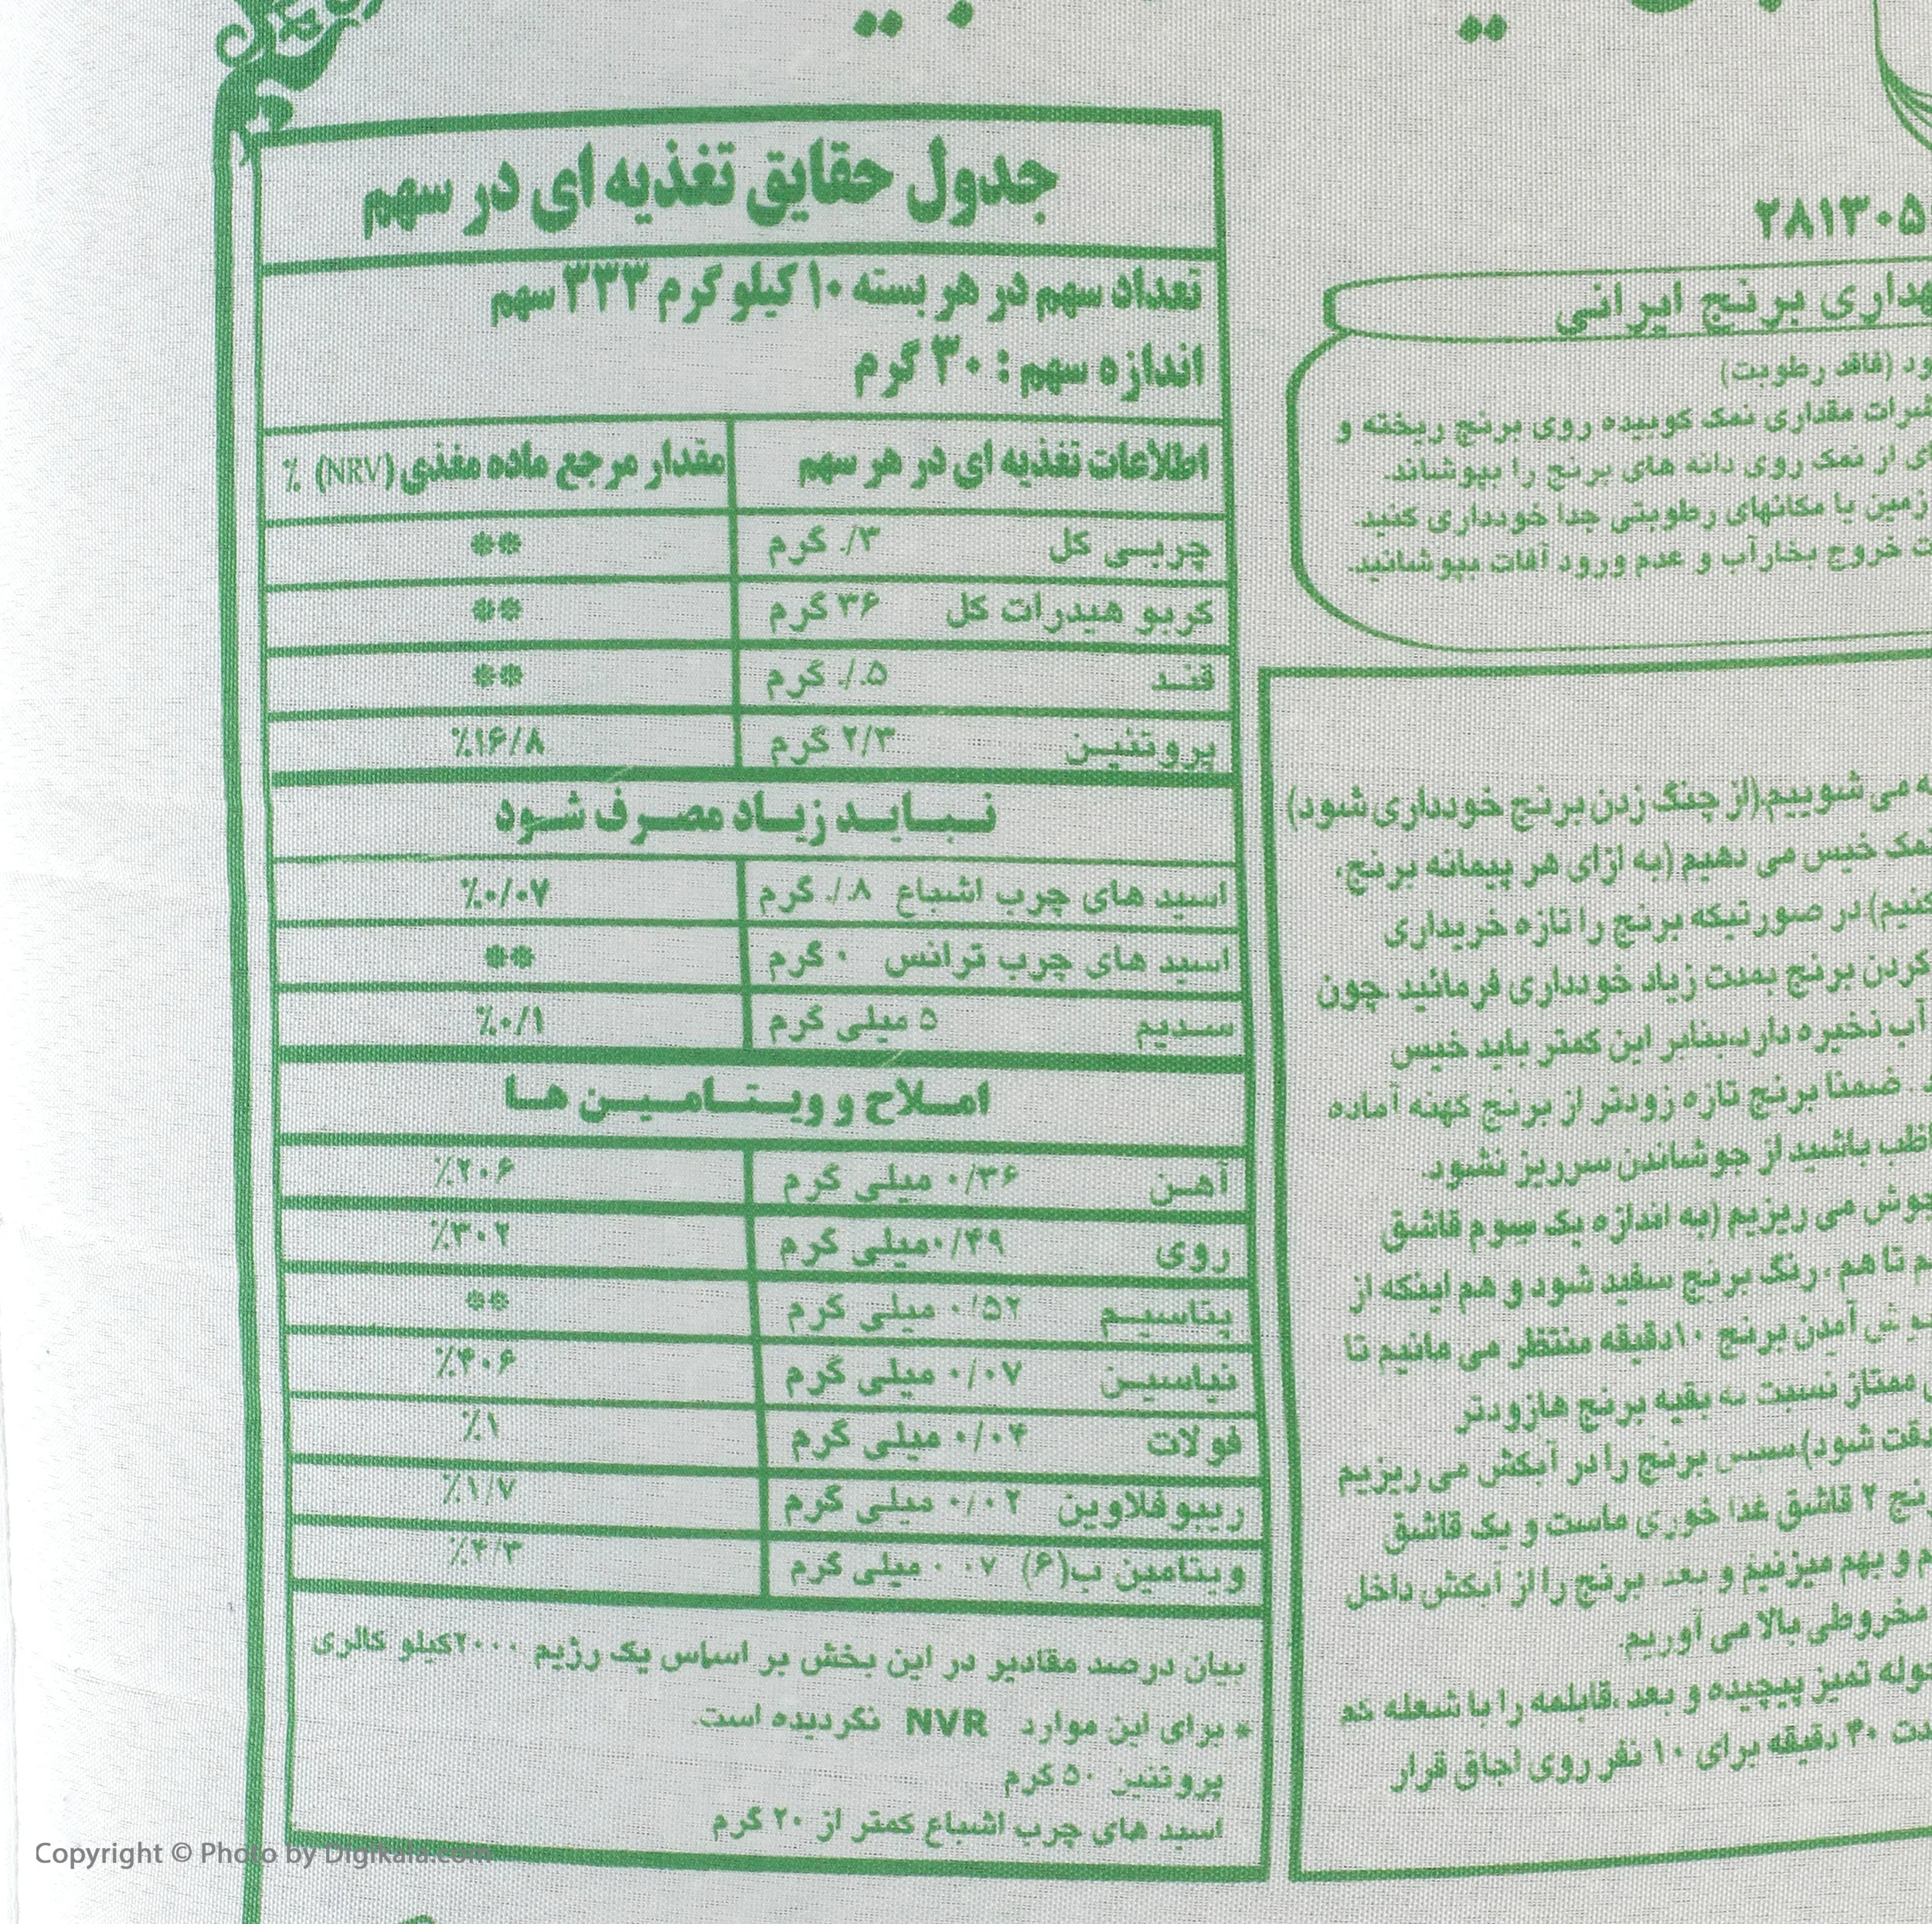 جدول حقایق تغذیه ای در سهم
تعداد سهم در هر بسته ۱۰ کیلو گرم ۳۳۳ سهم
اندازه سهم : ۳۰ گرم
اطلاعات تغذیه ای در هر سهم مقدار مرجع ماده مغذی (NRV) ٪
چربی کل ۳/. گرم **
کربو هیدرات کل ۳۶ گرم **
قند ۵./. گرم **
پروتئین ۲/۳ گرم ٪۱۶/۸
نباید زیاد مصرف شود
اسید های چرب اشباع ۸./. گرم ٪۰/۰۷
اسید های چرب ترانس ۰ گرم **
سدیم ۵ میلی گرم ٪۰/۱
املاح و ویتامین ها
آهن ۰/۳۶ میلی گرم ٪۲۰۶
روی ۰/۴۹میلی گرم ٪۳۰۲
پتاسیم ۰/۵۲ میلی گرم **
نیاسین ۰/۰۷ میلی گرم ٪۴۰۶
فولات ۰/۰۴ میلی گرم ٪۱
ریبوفلاوین ۰/۰۲ میلی گرم ٪۱/۷
ویتامین ب(۶) ۰۷ ۰ میلی گرم ٪۴/۳
بیان درصد مقادیر در این بخش بر اساس یک رژیم ۲۰۰۰کیلو کالری
* برای این موارد NVR نگردیده است.
پروتئین ۵۰ گرم
اسید های چرب اشباع کمتر از ۲۰ گرم
۲۸۱۳۰۵
برنج ایرانی
(فاقد رطوبت)
مقداری نمک کوبیده روی برنج ریخته و
از نمک روی دانه های برنج را بپوشاند.
زمین یا مکانهای رطوبتی جدا خودداری کنید.
خروج بخارآب و عدم ورود آفات بپوشانید.
می شوییم.(از چنگ زدن برنج خودداری شود)
خیس می دهیم (به ازای هر پیمانه برنج،
در صورتیکه برنج را تازه خریداری
کردن برنج بمدت زیاد خودداری فرمائید .چون
آب ذخیره دارد،بنابر این کمتر باید خیس
ضمنا برنج تازه زودتر از برنج کهنه آماده
باشید از جوشاندن سرریز نشود.
می ریزیم (به اندازه یک سوم قاشق
تا هم ، رنگ برنج سفید شود و هم اینکه از
آمدن برنج ۱۰دقیقه منتظر می مانیم تا
ممتاز نسبت به بقیه برنج هازودتر
شود).سپس برنج را در آبکش می ریزیم
۲ قاشق غذا خوری ماست و یک قاشق
و بهم میزنیم و بعد برنج را از آبکش داخل
مخروطی بالا می آوریم.
تمیز پیچیده و بعد ،قابلمه را با شعله کم
۴۰ دقیقه برای ۱۰ نفر روی اجاق قرار
Copyright © Photo by Digikala.com